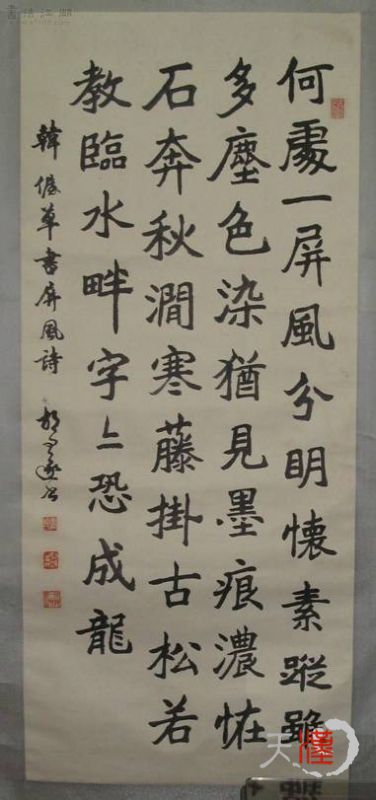 書法江湖
何處一屏風分明懷素蹤雖
多塵色染猶見墨痕濃恠
石奔秋澗寒藤掛古松若
教臨水畔字々恐成龍
韓偓草書屏風詩 胡问遂书
天